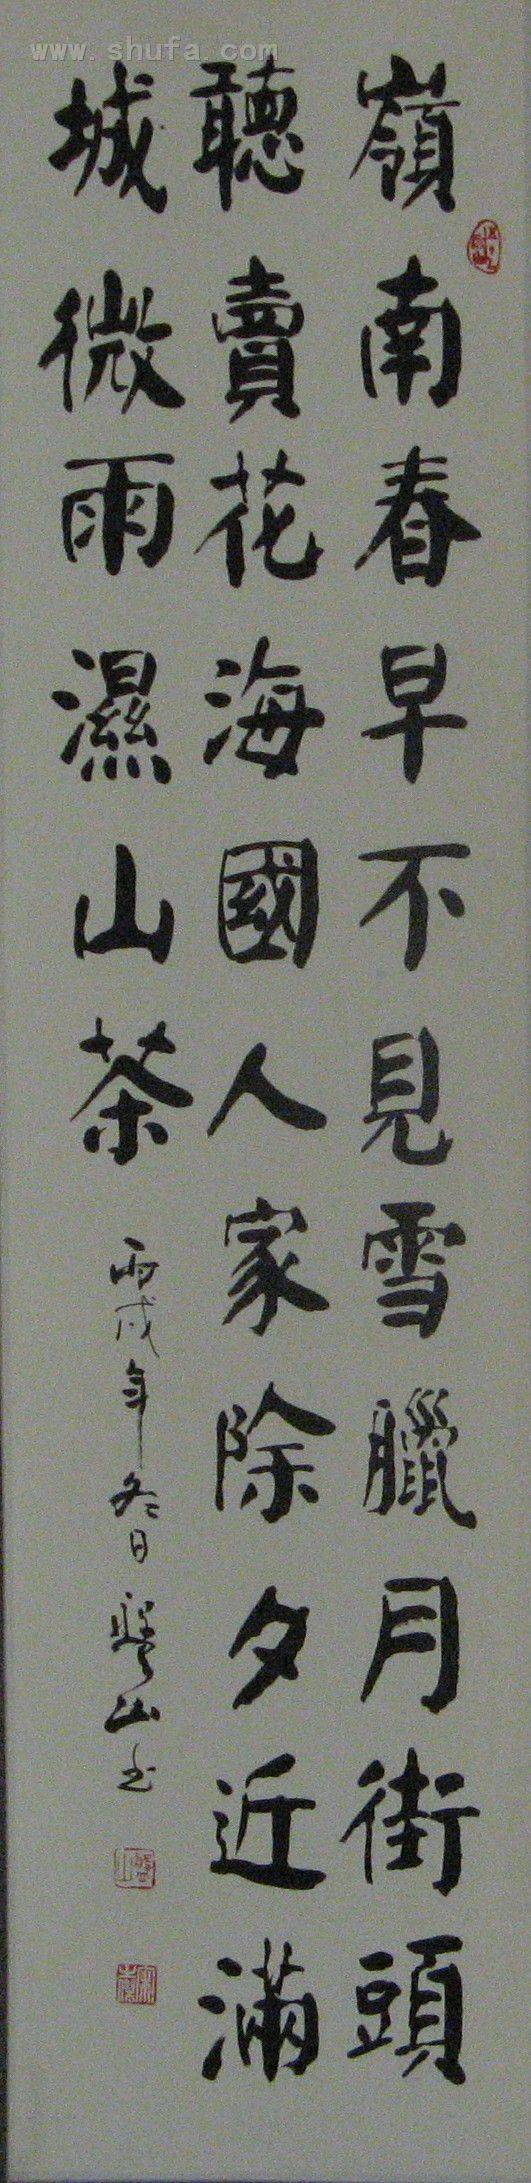 www.shufa.com
嶺南春早不見雪臘月街頭
聽賣花海國人家除夕近滿
城微雨濕山茶
丙戌年冬日
山书